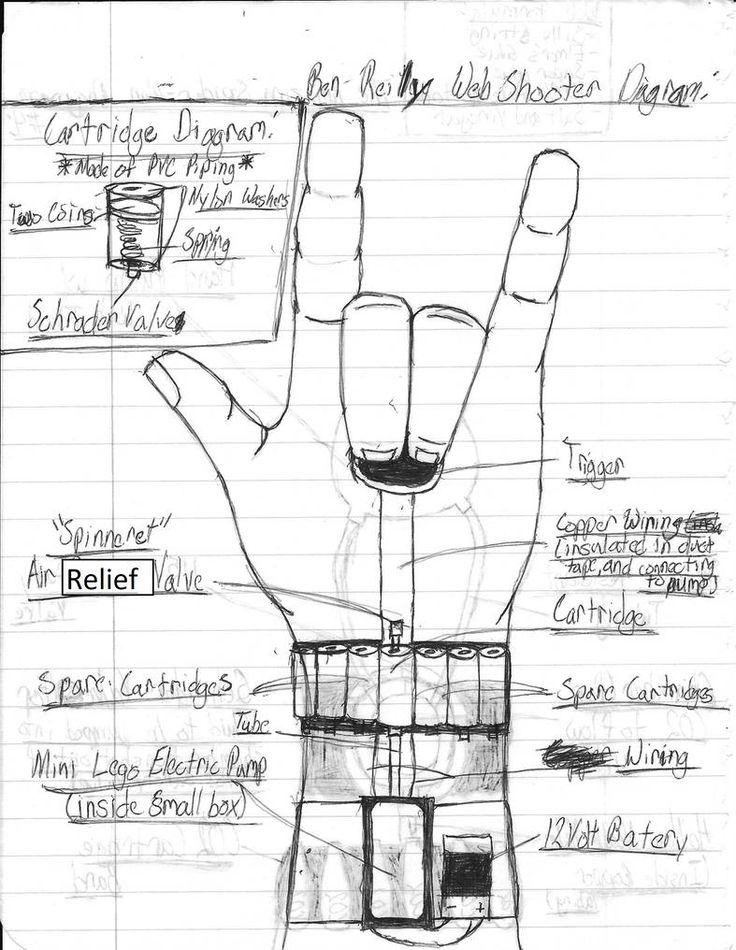 Ben-Reilly Web Shooter Diagram:
Cartridge Diagram:
*Made of PVC Piping*
Nylon Washers
Two Coins
Spring
Schrader Valve
Trigger
"Spinneret"
Air Relief Valve
Copper Wiring
(insulated in duct
tape, and connecting
to pump)
Cartridge
Spare Cartridges
Spare Cartridges
Tube
Wiring
Mini Lego Electric Pump
(inside small box)
12 Volt Batery
- +